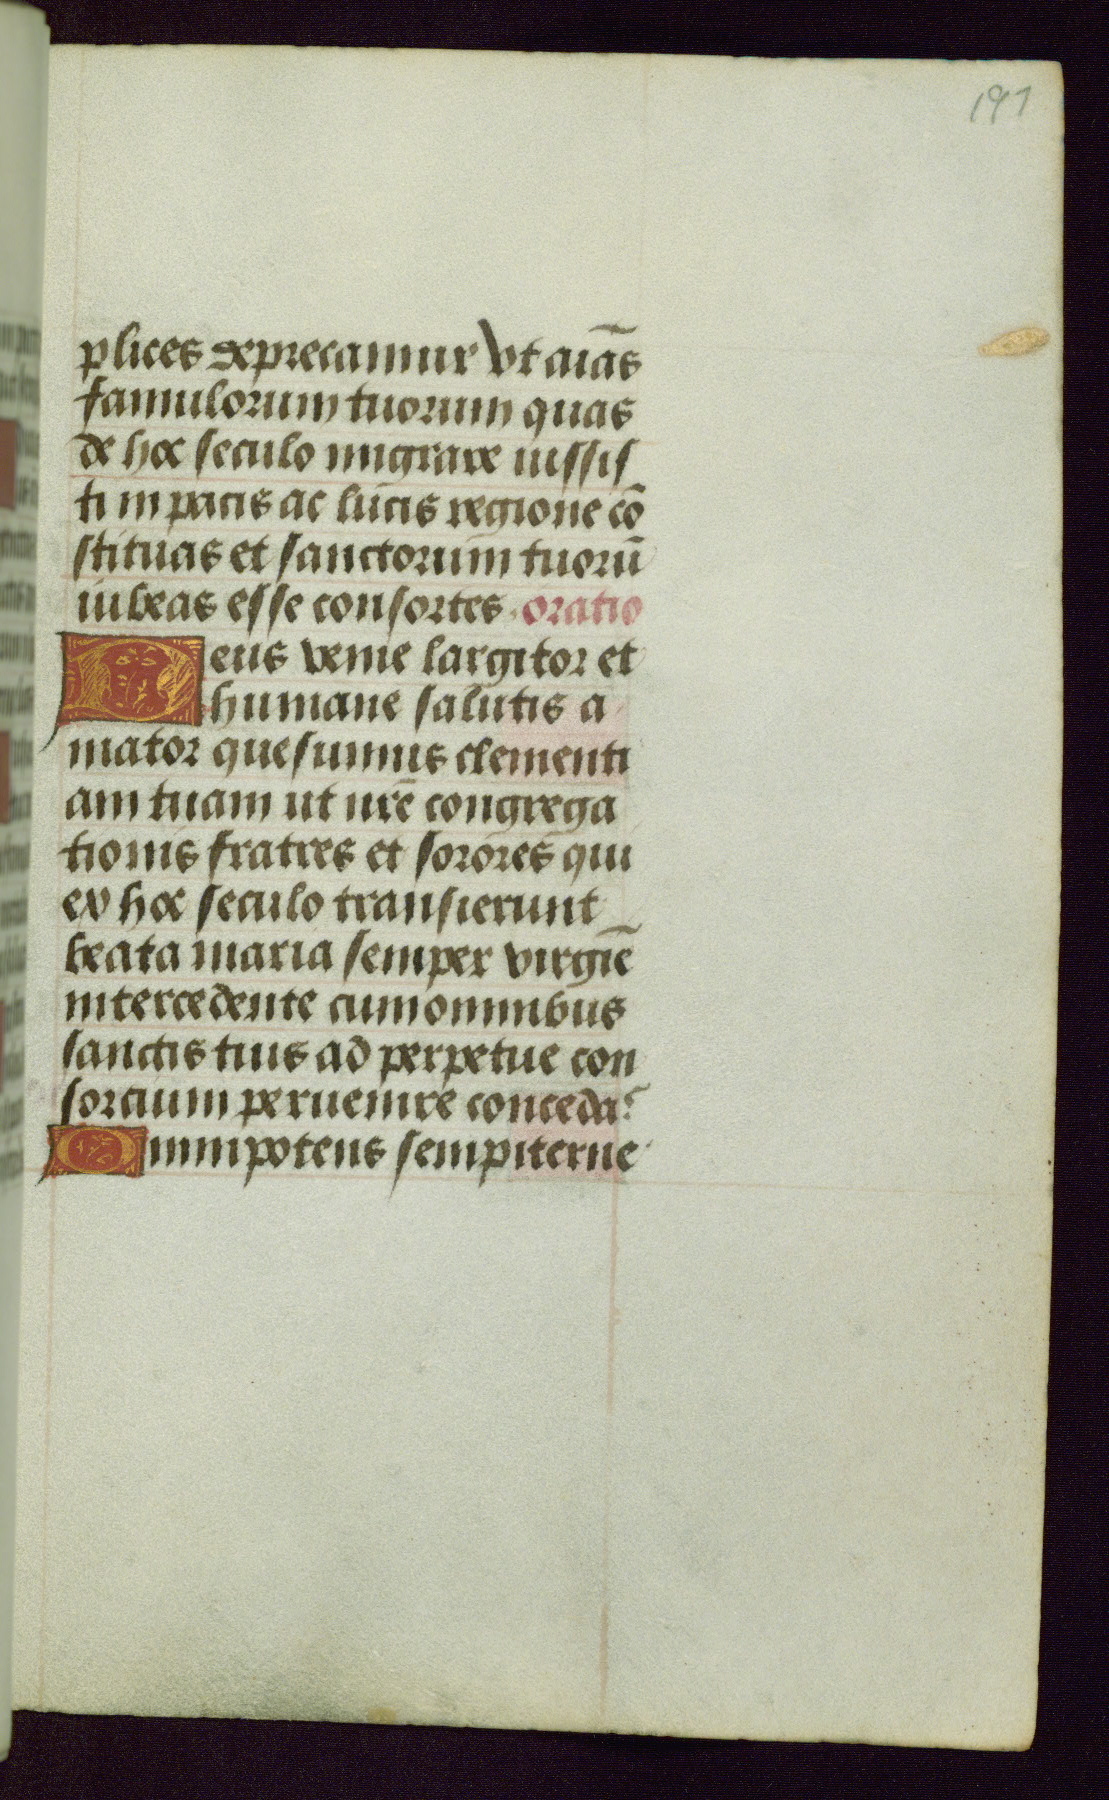 191
plices deprecamur Vt aiãs
famulorum tuorum quas
de hoc seculo migrare iussis
ti in pacis ac lucis regione cõ
stituas et sanctorum tuorũ
iubeas esse consortes. oratio
Deus venie largitor et
humane salutis a
mator quesumus clementi
am tuam ut nrẽ congrega
tionis fratres et sorores qui
ex hoc seculo transierunt
beata maria semper virgiẽ
intercedente cum omnibus
sanctis tuis ad perpetue con
sorcium peruenire conceda᷒
Omnipotens sempiterne